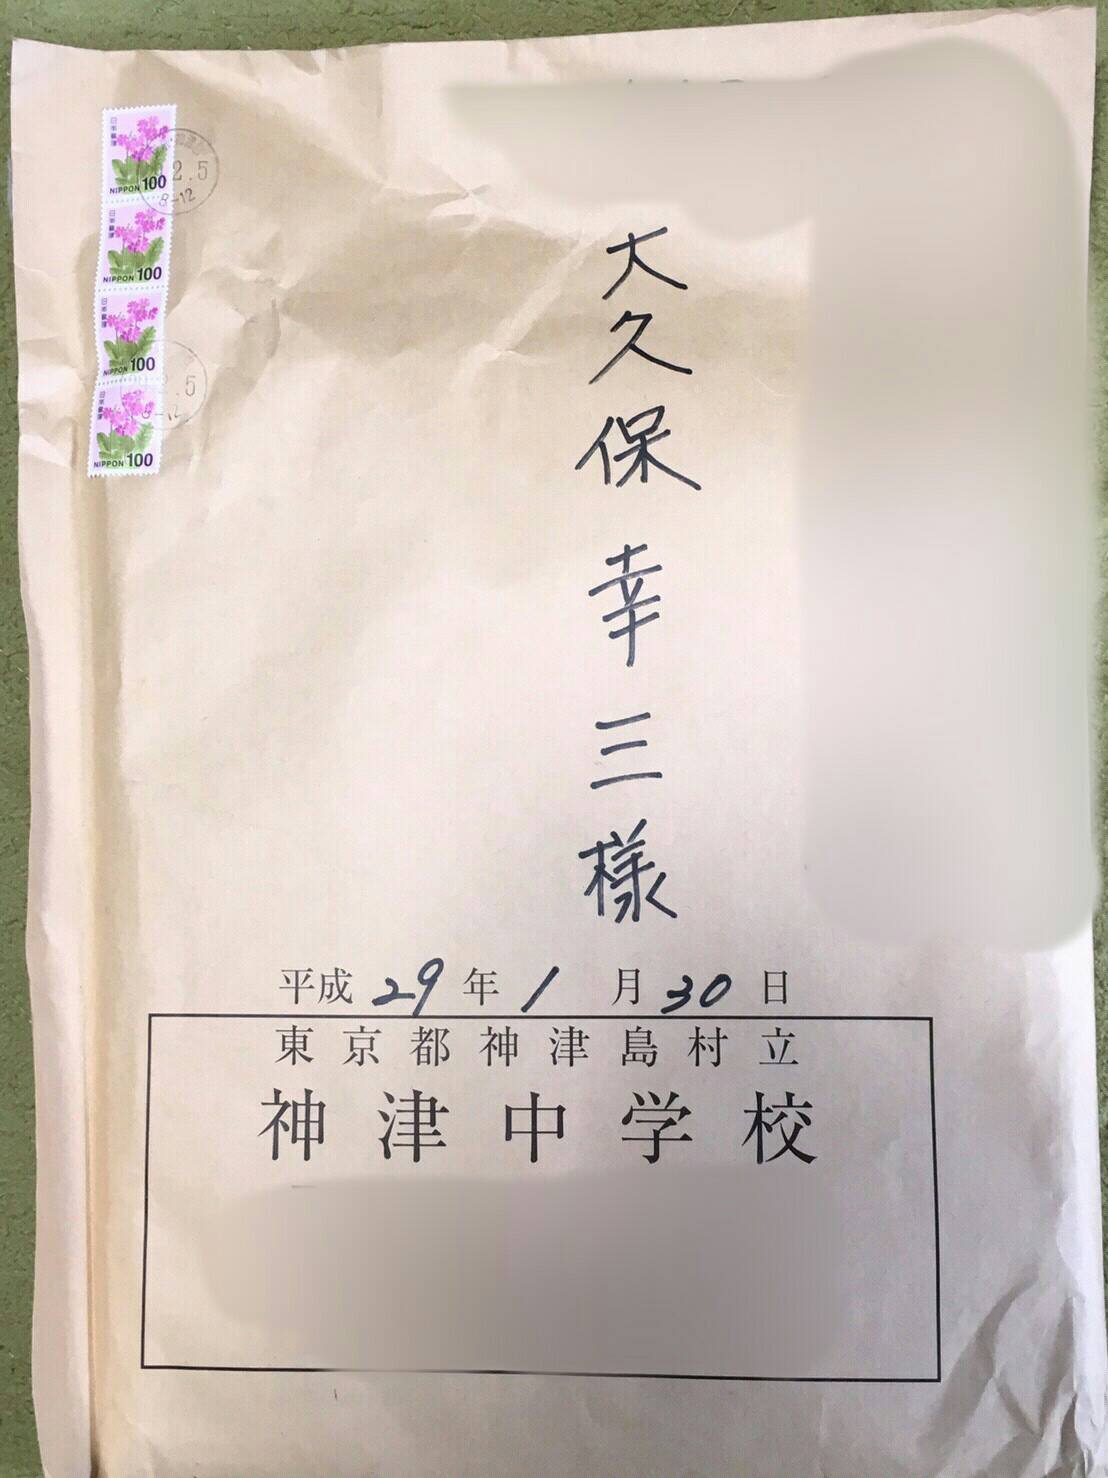 大久保幸三様
日本郵便
NIPPON 100
日本郵便
NIPPON 100
日本郵便
NIPPON 100
日本郵便
NIPPON 100
2.5
8-12
.5
8-12
平成29年1月30日
東京都神津島村立
神津中学校